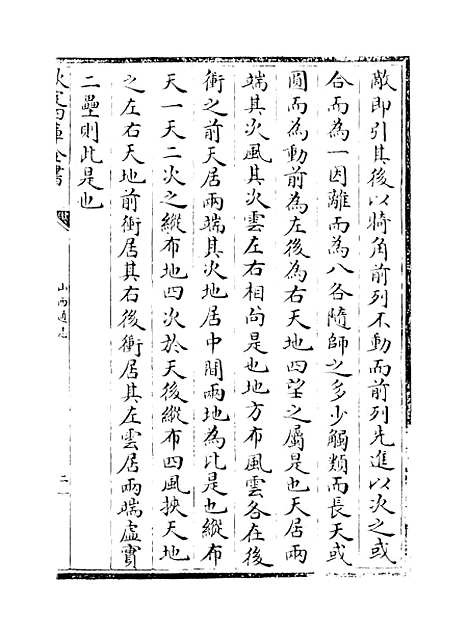 敵即引其後以犄角前列不動而前列先進以次之或
合而為一因離而為八各隨師之多少觸類而長天或
圓而為動前為左後為右天地四望之屬是也天居兩
端其次風其次雲左右相向是也地方布風雲各在後
衝之前天居兩端其次地居中間兩地為比是也縱布
天一天二次之縱布地四次於天後縱布四風挾天地
之左右天地前衝居其右後衝居其左雲居兩端虛實
二壘則此是也
欽定四庫全書
山西通志